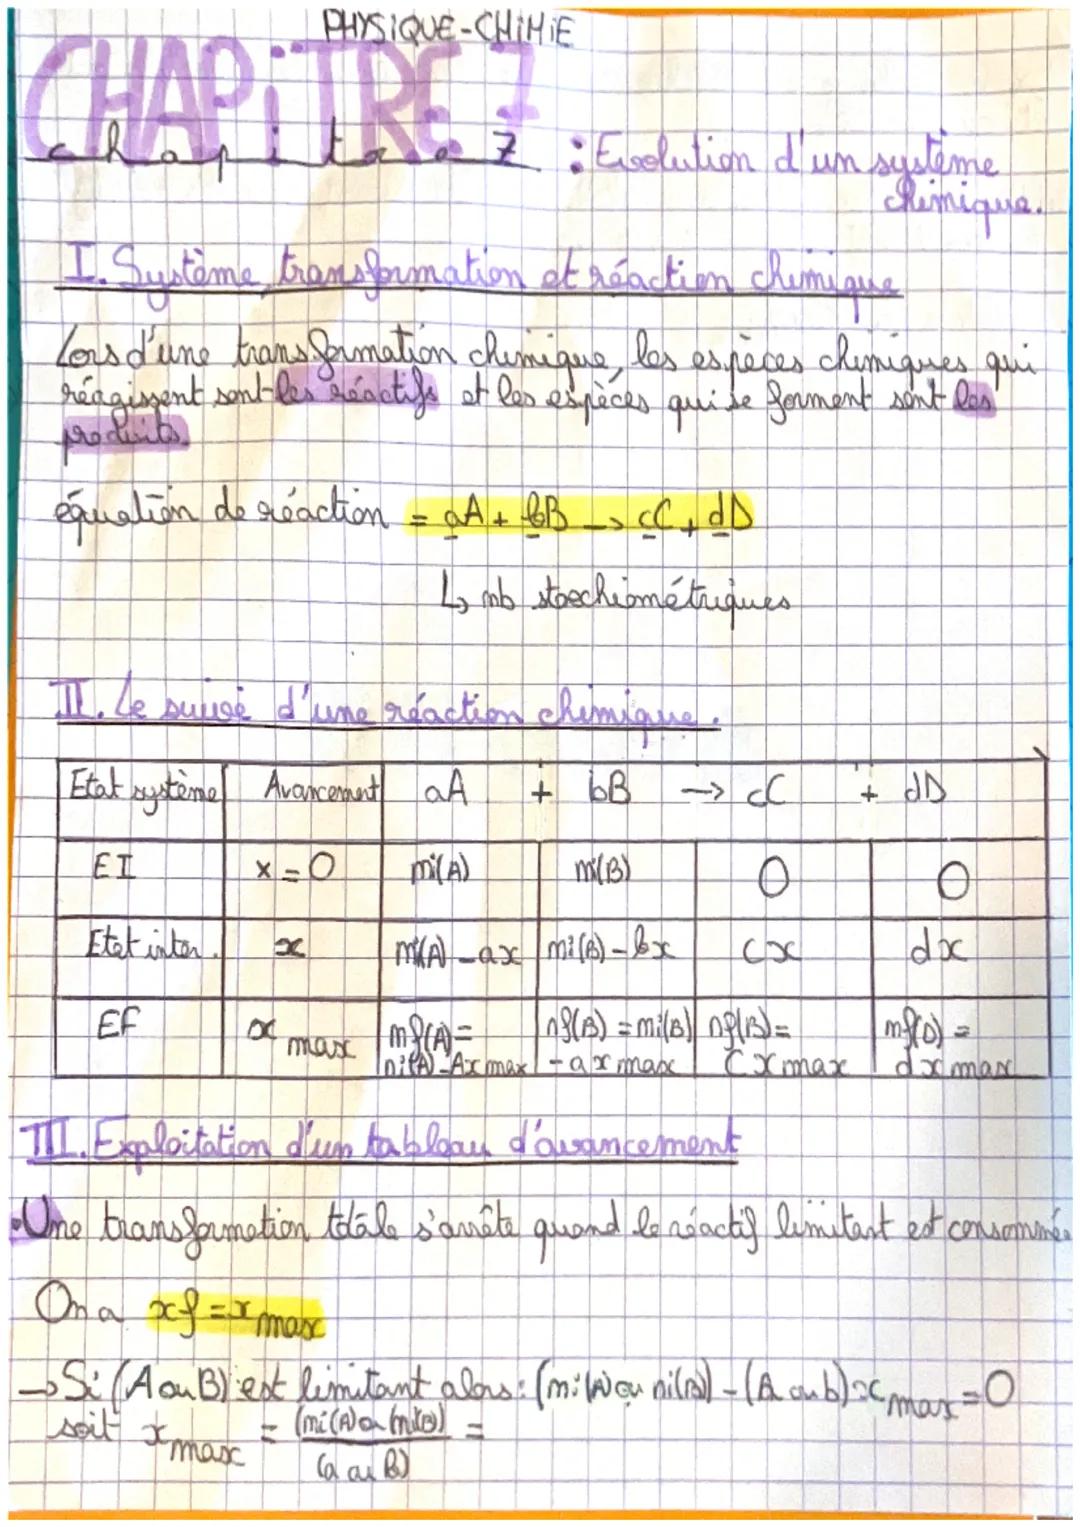 PHYSIQUE-CHIMIE
CHAPITRE 7
chapitre 7 : Evolution d'un système
chimique.
I. Système, transformation et réaction chimique
Lors d'une transformation chimique, les espèces chimiques qui
réagissent sont les réactifs et les espèces qui se forment sont les
produits.
équation de réaction = aA + bB -> cC + dD
↳ nb stoechiométriques
II. Le suivi d'une réaction chimique.
Etat système Avancement aA + bB -> cC + dD
EI x = 0 ni(A) ni(B) 0 0
Etat inter. x ni(A) - ax ni(B) - bx cx dx
EF x max nf(A) = nf(B) = ni(B) nf(B) = nf(D) =
ni(A) - Ax max - a x max C x max d x max
III. Exploitation d'un tableau d'avancement
• Une transformation totale s'arrête quand le réactif limitant est consommé.
On a xf = x max
-> Si (A ou B) est limitant alors : (ni(A) ou ni(B)) - (A ou b) x max = 0
soit x max = (ni(A) ou (ni(B)) =
(a ou B)